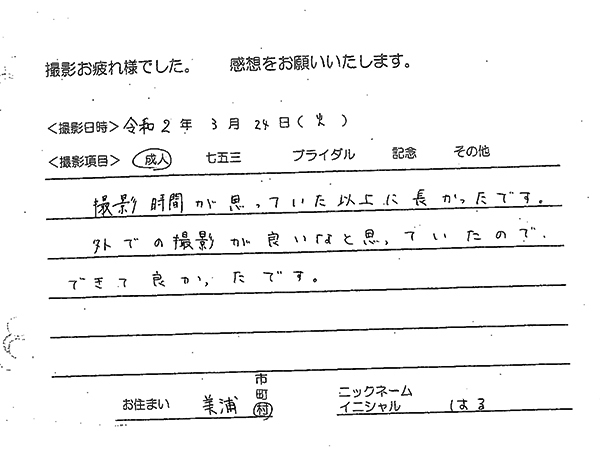 撮影お疲れ様でした。 感想をお願いいたします。
<撮影日時> 令和2年 3月 24日(火)
<撮影項目> 成人 七五三 ブライダル 記念 その他
撮影時間が思っていた以上に長かったです。
外での撮影が良いなと思っていたので、
できて良かったです。
お住まい 美浦 市 町 村
ニックネーム
イニシャル はる